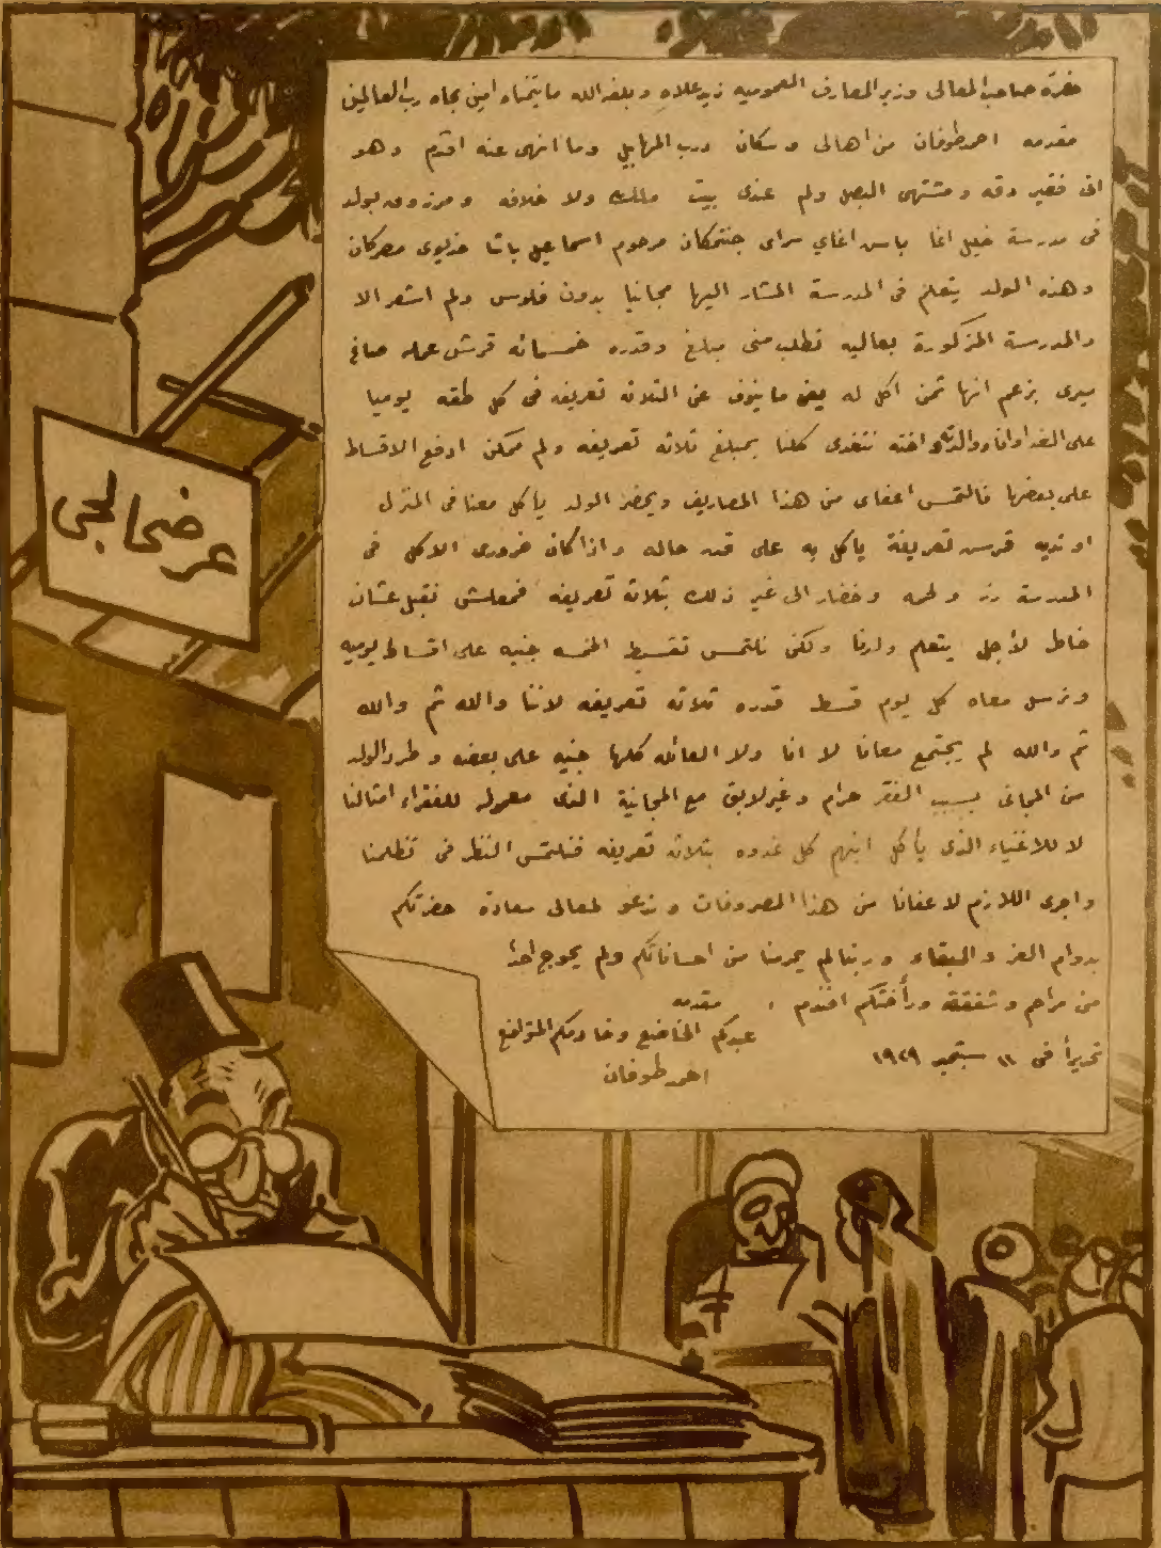 حضرة صاحب المعالى وزير المعارف العموميه زيد علاه وبلغه الله ما يتمناه امين بجاه رب العالمين
مقدمه احمد طوفان من اهالى وسكان درب المهابيل وما انهى عنه افندم وهو
انى فقير دقه ومشتهى البصل ولم عندى بيت ملك ولا خلافه ومرزوق بولد
فى مدرسة خليل اغا باش اغاي سراى جنتمكان مرحوم اسماعيل باشا خديوى مصر كان
وهذه الولد يتعلم فى المدرسة المشار اليها مجانيا بدون فلوس ولم اشعر الا
والمدرسة المذكورة بعاليه تطلب منى مبلغ وقدره خمسمائه قرش عمله صاغ
ميرى بزعم انها ثمن اكل له يعنى ما ينوف عن التلاته تعريفه فى كل طقه يوميا
على الغدا وانا ووالدته واخته نتغدى كلنا بمبلغ تلاته تعريفه ولم ممكن ادفع الاقساط
على بعضها فالتمس اعفاى من هذا المصاريف ويحضر الولد ياكل معنا فى المنزل
او نديه قرس تعريفة ياكل به على قد حاله واذا كان ضرورى الاكل فى
المدرسة رز ولحمه وخضار الى غير ذلك بتلاته تعريفه فمعلش نقبل عشان
خاطر لأجل يتعلم ولدنا ولكن نلتمس تقسيط الخمسه جنيه على اقساط يوميه
ونرسل معاه كل يوم قسط قدره تلاته تعريفه لاننا والله ثم والله
ثم والله لم يجتمع معانا لا انا ولا العائله كلها جنيه على بعضه وطرد الولد
من المجانى بسبب الفقر حرام وغير لايق مع المجانية الذى معموله للفقراء امثالنا
لا للاغنياء الذى يأكل ابنهم كل غدوه بتلاته تعريفه فنلتمس النظر فى تظلمنا
واجرى اللازم لاعفانا من هذا المصروفات وندعو لمعالى سعادة حضرتكم
بدوام العز والبقاء وربنا لم يحرمنا من احساناتكم ولم يحوج احدا
من مراحم وشفقة ورأفتكم افندم ،
مقدمه
عبدكم الخاضع وخادمكم المتواضع
احمد طوفان
تحريراً فى ١١ سبتمبر ١٩٢٩
عرضحالجى